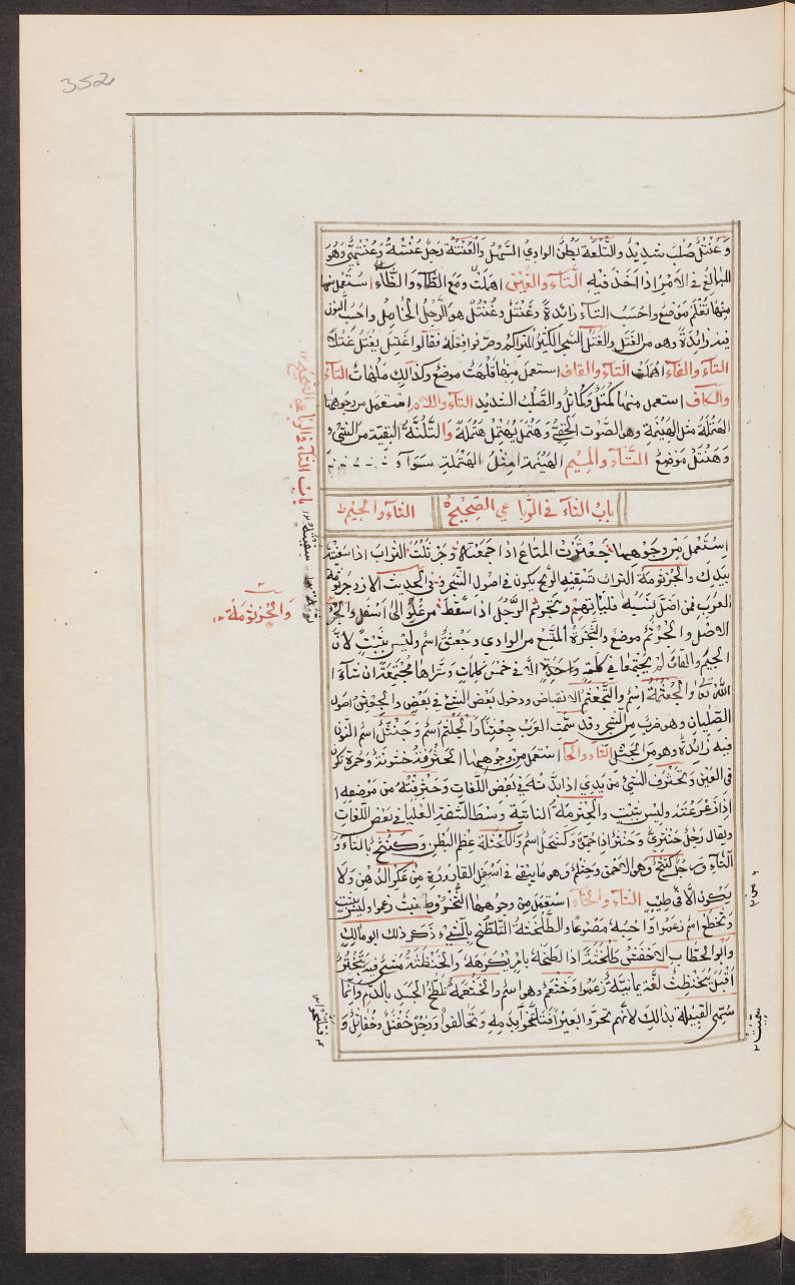 352
وعنتل صلب شديد والتلعة بطن الوادي السهل والعنثة رجل عنثة وعنثى وهو
المبالغ في الامر اذا اخذ فيه الثاء والغين اهملت ومع الظاء والظاء استعمل منها
منها تغلم موضع واحسب التاء زائدة وغنثل وغنثل هو الرجل الخامل واحسب النون
فيه زائدة وهو من الغثل والغثل الكثير المتراكم وصرفوا فعله فقالوا غثل يغثل غثلا
الثاء والفاء اهملت الثاء والقاف استعمل منها قلهث موضع وكذالك ملهاث الثاء
والكاف استعمل منها كمثل وكماثل والصلب الشديد الثاء واللام استعمل من وجوهها
الهثملة مثل الهينمة وهو الصوت الخفي وهثمل يهثمل هثملة والثلثة البقية من الشئ و
وهنثل موضع الثاء والميم الهينمة مثل الهثملة سواء
باب الثاء في الرباعي الصحيح الثاء والجيم
استعمل من وجوهها جعثرت المتاع اذا جمعته وجرثلت التراب اذا سفيته
بيدك والجرثومة التراب تسفيه الريح يكون في اصول الشجر وفي الحديث الازد جرثومة
العرب فمن اضل نسبه فليأتهم وتجرثم الرجل اذا سقط من علو الى اسفل والجرثومة
الاصل والجرثم موضع والثجرة المتسع من الوادي وجعثق اسم وليس بثبت لان
الجيم والقاف لم يجتمعا في كلمة واحدة الا في خمس كلمات وستراها مجتمعة ان شاء ا
الله تعا والجعثمة اسم والتجعثم الانقباض ودخول بعض الشئ في بعض والجعثن اصول
الصليان وهو ضرب من الشجر وقد سمت العرب جعثنا والجلثم اسم وجنثل اسم النون
فيه زائدة وهو من الجثل الثاء والحا استعمل من وجوهها الحثرفة خشونة وحمرة تكون
في العين وتحثرف الشئ من يدي اذا بددته في بعض اللغات وحثرفته من موضعه ا
اذا زعزعته وليس بثبت والحثرمة الناتية وسط الشفة العليا في بعض اللغات
ويقال رجل حنثري وحنثر اذا حمق وكنثحل اسم والكحثلة عظم البطن وكنثح بالثاء و
التاء ورجل كنثح وهو الاحمق وحثلم وهو ما يبقى في اسفل القارورة من عكر الدهن ولا
يكون الا في طيب الثاء والخاء استعمل من وجوهها الثخروط نبت زعموا وليس بثبت
وثخطع اسم زعموا واحسبه مصنوعا والطلخثة التلطخ بالشيء ذكر ذلك ابو مالك
وابو الخطاب الاخفش طلخثه اذا لطخه بامر يكرهه والخنطثة مشي فيه تبختر
اقبل يتخنطث لغة يمانية زعموا وخثعم وهو اسم والخثعمة تلطخ الجسد بالدم وانما
سمي القبيلة بذالك لانهم نحروا بعيرا فتلطخوا بدمه وتحالفوا ورجل خفثل وخفاثل و
باب الثاء في الرباعي الصحيح
والجرثومة